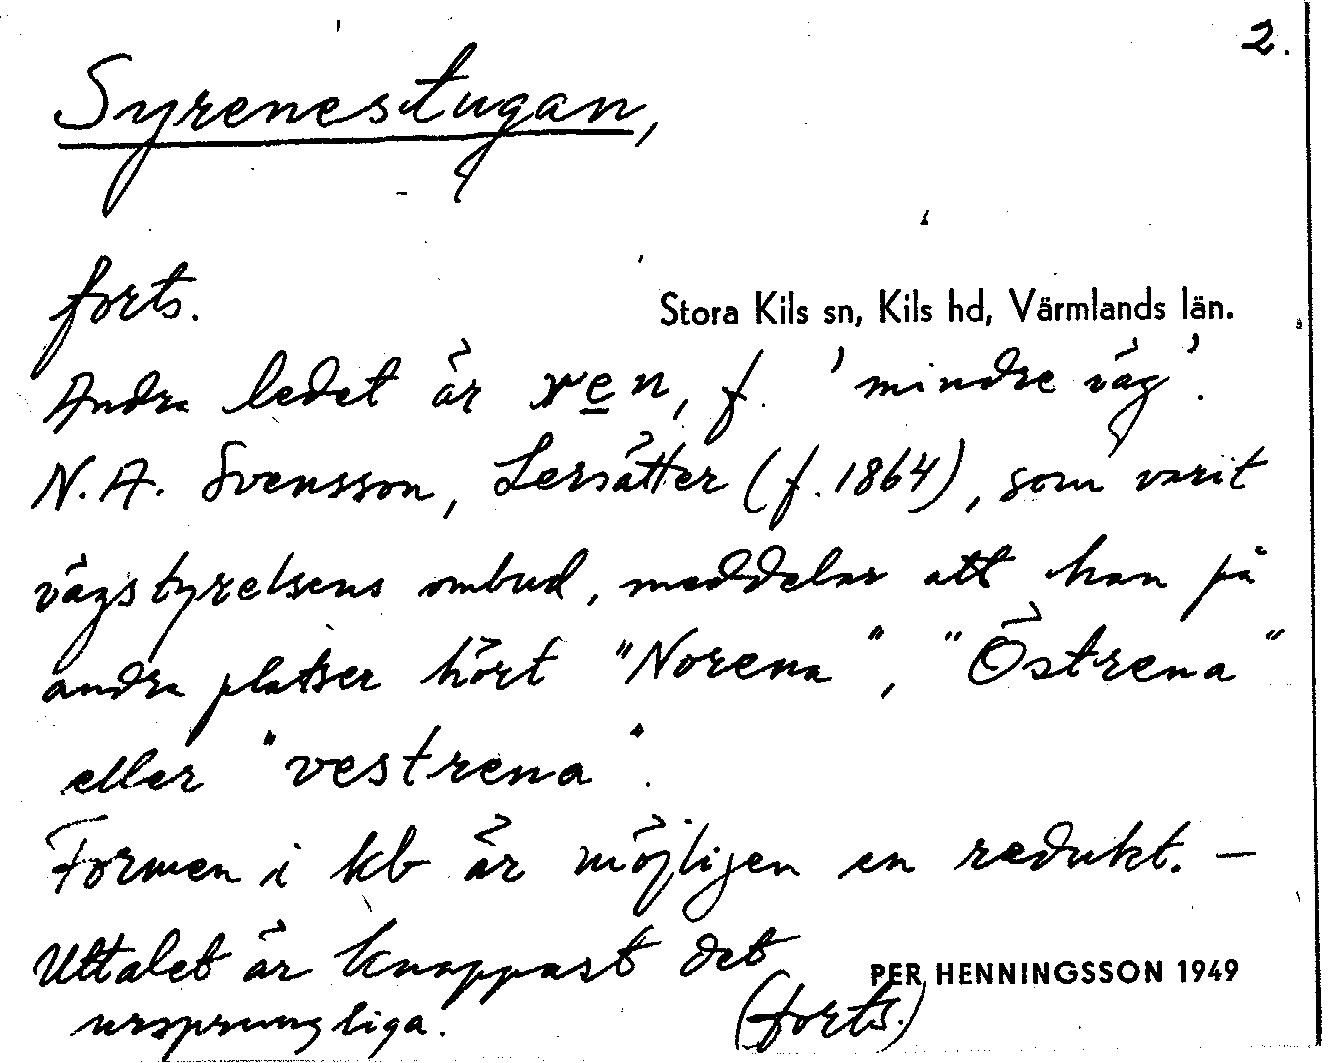 2.
Syrenestugan,
forts.
Stora Kils sn, Kils hd, Värmlands län.
Andra ledet är ren, f. 'mindre väg'.
N. A. Svensson, Lersätter (f. 1864), som varit
vägstyrelsens ombud, meddelar att han på
andra platser hört "Norena", "Östrena"
eller "vestrena".
Formen i kb är möjligen en redukt. —
Uttalet är knappast det
ursprungliga.
PER HENNINGSSON 1949
(forts.)